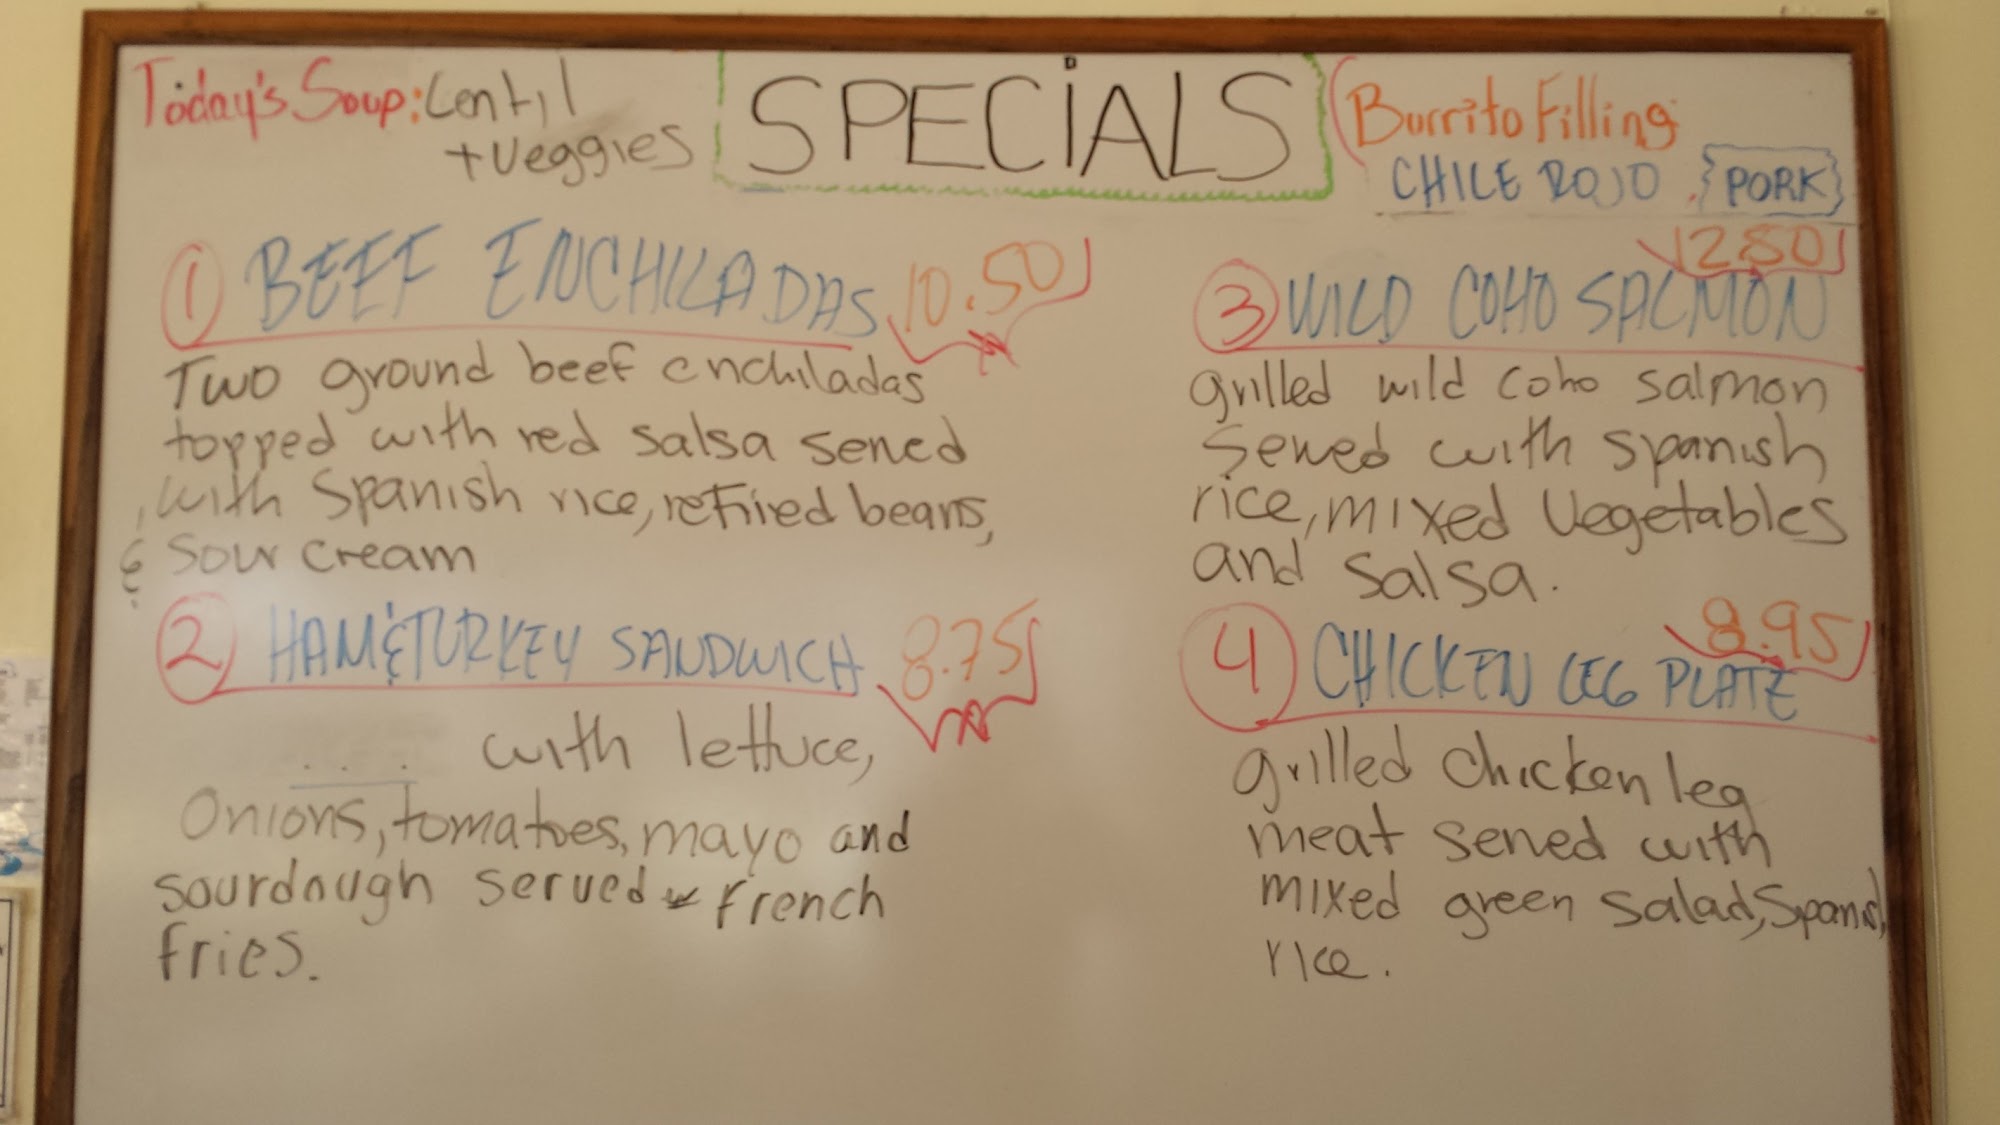 Today's Soup: Lentil
+ veggies
SPECiALS
Burrito Filling
CHILE ROJO PORK
1 BEEF ENCHILADAS 10.50
Two ground beef enchiladas
topped with red salsa served
with Spanish rice, refired beans,
& Sour cream
2 HAM & TURKEY SANDWICH 8.75
with lettuce,
Onions, tomatoes, mayo and
sourdough served w french
fries.
12.50
3 WILD COHO SALMON
grilled wild coho salmon
served with spanish
rice, mixed vegetables
and salsa.
8.95
4 CHICKEN LEG PLATE
grilled chicken leg
meat served with
mixed green salad, Spanish
rice.